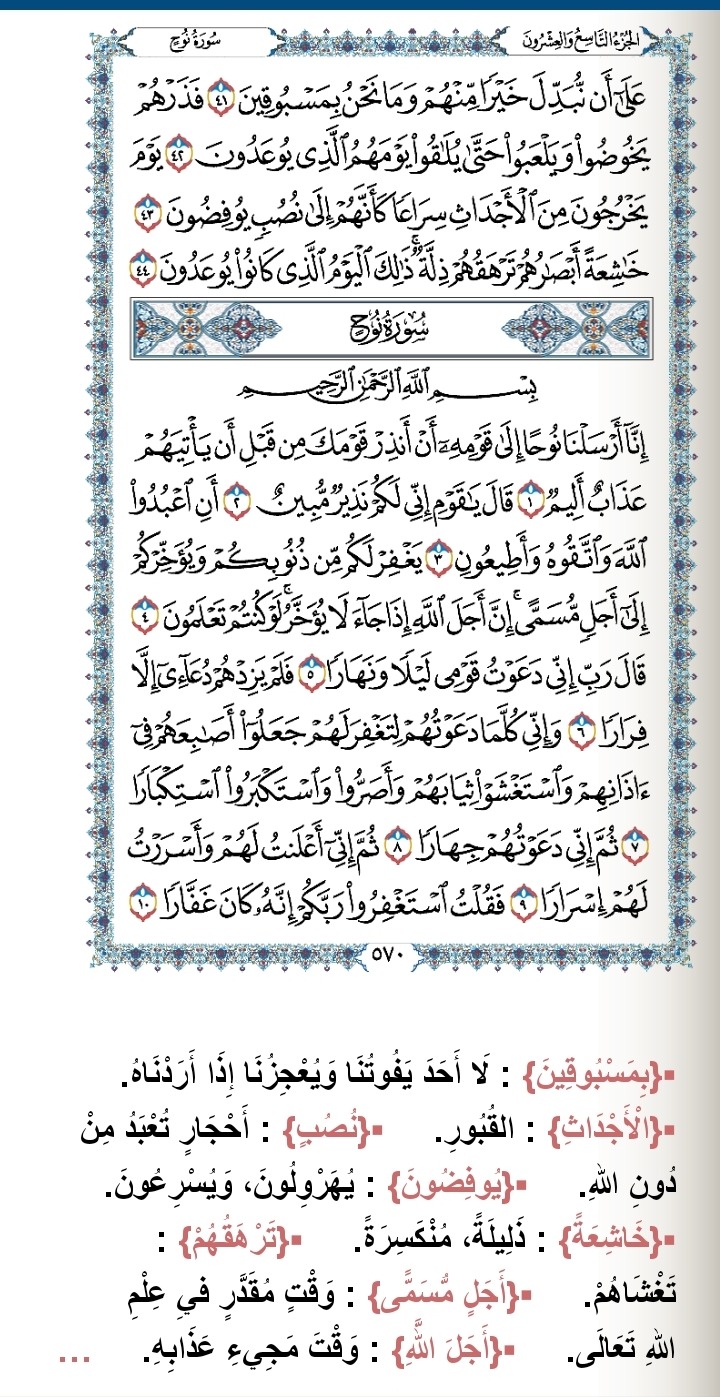 الجُزْءُ التَّاسِعُ وَالعِشْرُونَ سُورَةُ نُوحٍ
عَلَىٰٓ أَن نُّبَدِّلَ خَيْرًا مِّنْهُمْ وَمَا نَحْنُ بِمَسْبُوقِينَ ٤١ فَذَرْهُمْ
يَخُوضُوا۟ وَيَلْعَبُوا۟ حَتَّىٰ يُلَٰقُوا۟ يَوْمَهُمُ ٱلَّذِى يُوعَدُونَ ٤٢ يَوْمَ
يَخْرُجُونَ مِنَ ٱلْأَجْدَاثِ سِرَاعًا كَأَنَّهُمْ إِلَىٰ نُصُبٍ يُوفِضُونَ ٤٣
خَٰشِعَةً أَبْصَٰرُهُمْ تَرْهَقُهُمْ ذِلَّةٌ ۚ ذَٰلِكَ ٱلْيَوْمُ ٱلَّذِى كَانُوا۟ يُوعَدُونَ ٤٤
سُورَةُ نُوحٍ
بِسْمِ ٱللَّهِ ٱلرَّحْمَٰنِ ٱلرَّحِيمِ
إِنَّآ أَرْسَلْنَا نُوحًا إِلَىٰ قَوْمِهِۦٓ أَنْ أَنذِرْ قَوْمَكَ مِن قَبْلِ أَن يَأْتِيَهُمْ
عَذَابٌ أَلِيمٌ ١ قَالَ يَٰقَوْمِ إِنِّى لَكُمْ نَذِيرٌ مُّبِينٌ ٢ أَنِ ٱعْبُدُوا۟
ٱللَّهَ وَٱتَّقُوهُ وَأَطِيعُونِ ٣ يَغْفِرْ لَكُم مِّن ذُنُوبِكُمْ وَيُؤَخِّرْكُمْ
إِلَىٰٓ أَجَلٍ مُّسَمًّى ۚ إِنَّ أَجَلَ ٱللَّهِ إِذَا جَآءَ لَا يُؤَخَّرُ ۖ لَوْ كُنتُمْ تَعْلَمُونَ ٤
قَالَ رَبِّ إِنِّى دَعَوْتُ قَوْمِى لَيْلًا وَنَهَارًا ٥ فَلَمْ يَزِدْهُمْ دُعَآءِىٓ إِلَّا
فِرَارًا ٦ وَإِنِّى كُلَّمَا دَعَوْتُهُمْ لِتَغْفِرَ لَهُمْ جَعَلُوٓا۟ أَصَٰبِعَهُمْ فِىٓ
ءَاذَانِهِمْ وَٱسْتَغْشَوْا۟ ثِيَابَهُمْ وَأَصَرُّوا۟ وَٱسْتَكْبَرُوا۟ ٱسْتِكْبَارًا
٧ ثُمَّ إِنِّى دَعَوْتُهُمْ جِهَارًا ٨ ثُمَّ إِنِّىٓ أَعْلَنتُ لَهُمْ وَأَسْرَرْتُ
لَهُمْ إِسْرَارًا ٩ فَقُلْتُ ٱسْتَغْفِرُوا۟ رَبَّكُمْ إِنَّهُۥ كَانَ غَفَّارًا ١٠
٥٧٠
▪{بِمَسْبُوقِينَ} : لَا أَحَدَ يَفُوتُنَا وَيُعْجِزُنَا إِذَا أَرَدْنَاهُ.
▪{الْأَجْدَاثِ} : القُبُورِ. ▪{نُصُبٍ} : أَحْجَارٍ تُعْبَدُ مِنْ
دُونِ اللهِ. ▪{يُوفِضُونَ} : يُهَرْوِلُونَ، وَيُسْرِعُونَ.
▪{خَاشِعَةً} : ذَلِيلَةً، مُنْكَسِرَةً. ▪{تَرْهَقُهُمْ} :
تَغْشَاهُمْ. ▪{أَجَلٍ مُّسَمًّى} : وَقْتٍ مُقَدَّرٍ فِي عِلْمِ
اللهِ تَعَالَى. ▪{أَجَلَ اللَّهِ} : وَقْتَ مَجِيءِ عَذَابِهِ. ...